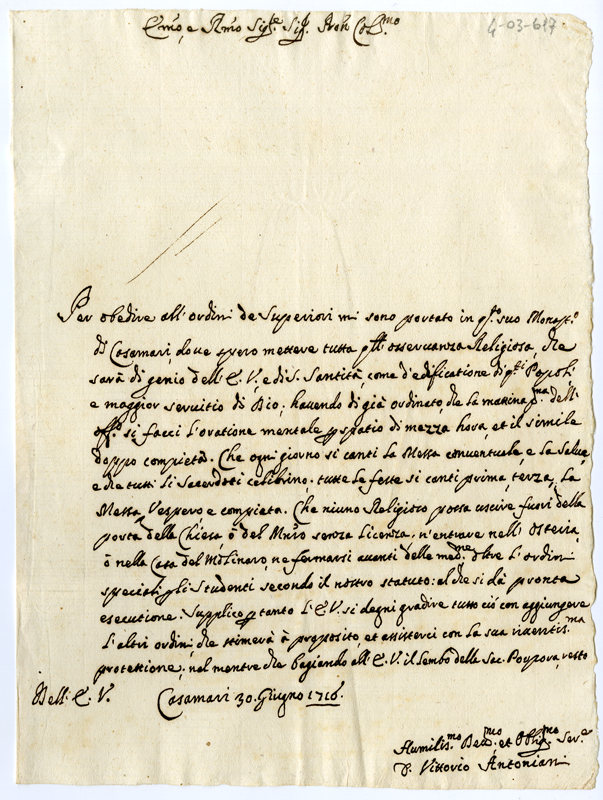 Em̃o, e Rm̃o Sig.re Sig. Pron Col.mo
4-03-617.
Per obedire all'ordini de Superiori mi sono portato in q.to suo Monast.o
di Casamari dove spero mettere tutta q.lla osservanza Religiosa, che
sarà di genio dell'E. V. e di S. Santità, come d'edificatione di q.ti Popoli
e maggior servitio di Dio; havendo di già ordinato, che la mattina p.ma dell'
off.o si facci l'oratione mentale p spatio di mezza hora, et il simile
doppo compieta. Che ogni giorno si canti la Messa conventuale, e la Salve
e che tutti li Sacerdoti celibrino; tutte le feste si canti prima, terza, la
Messa, Vespero e compieta. Che niuno Religioso possa uscire fuori della
porta della Chiesa, ò del Mn̄ro senza licenza, n'entrare nell'Osteria,
ò nella Casa del Molinaro, ne fermarsi avanti delle med.me oltre l'ordini
speciali p gli Studenti secondo il nostro statuto: al che si dà pronta
esecutione. Supplico p tanto l'E. V. si degni gradire tutto ciò con aggiungere
l'altri ordini, che stimerà à proposito, et assisterci con la sua
protettione; nel mentre che bagiando all'E. V. il lembo della Sac. Porpora, resto
Dell'E. V. Casamari 30. Giugno 1716.
Humilis.mo Dev.mo et Oblig.mo Ser.e
D. Vittorio Antoniani